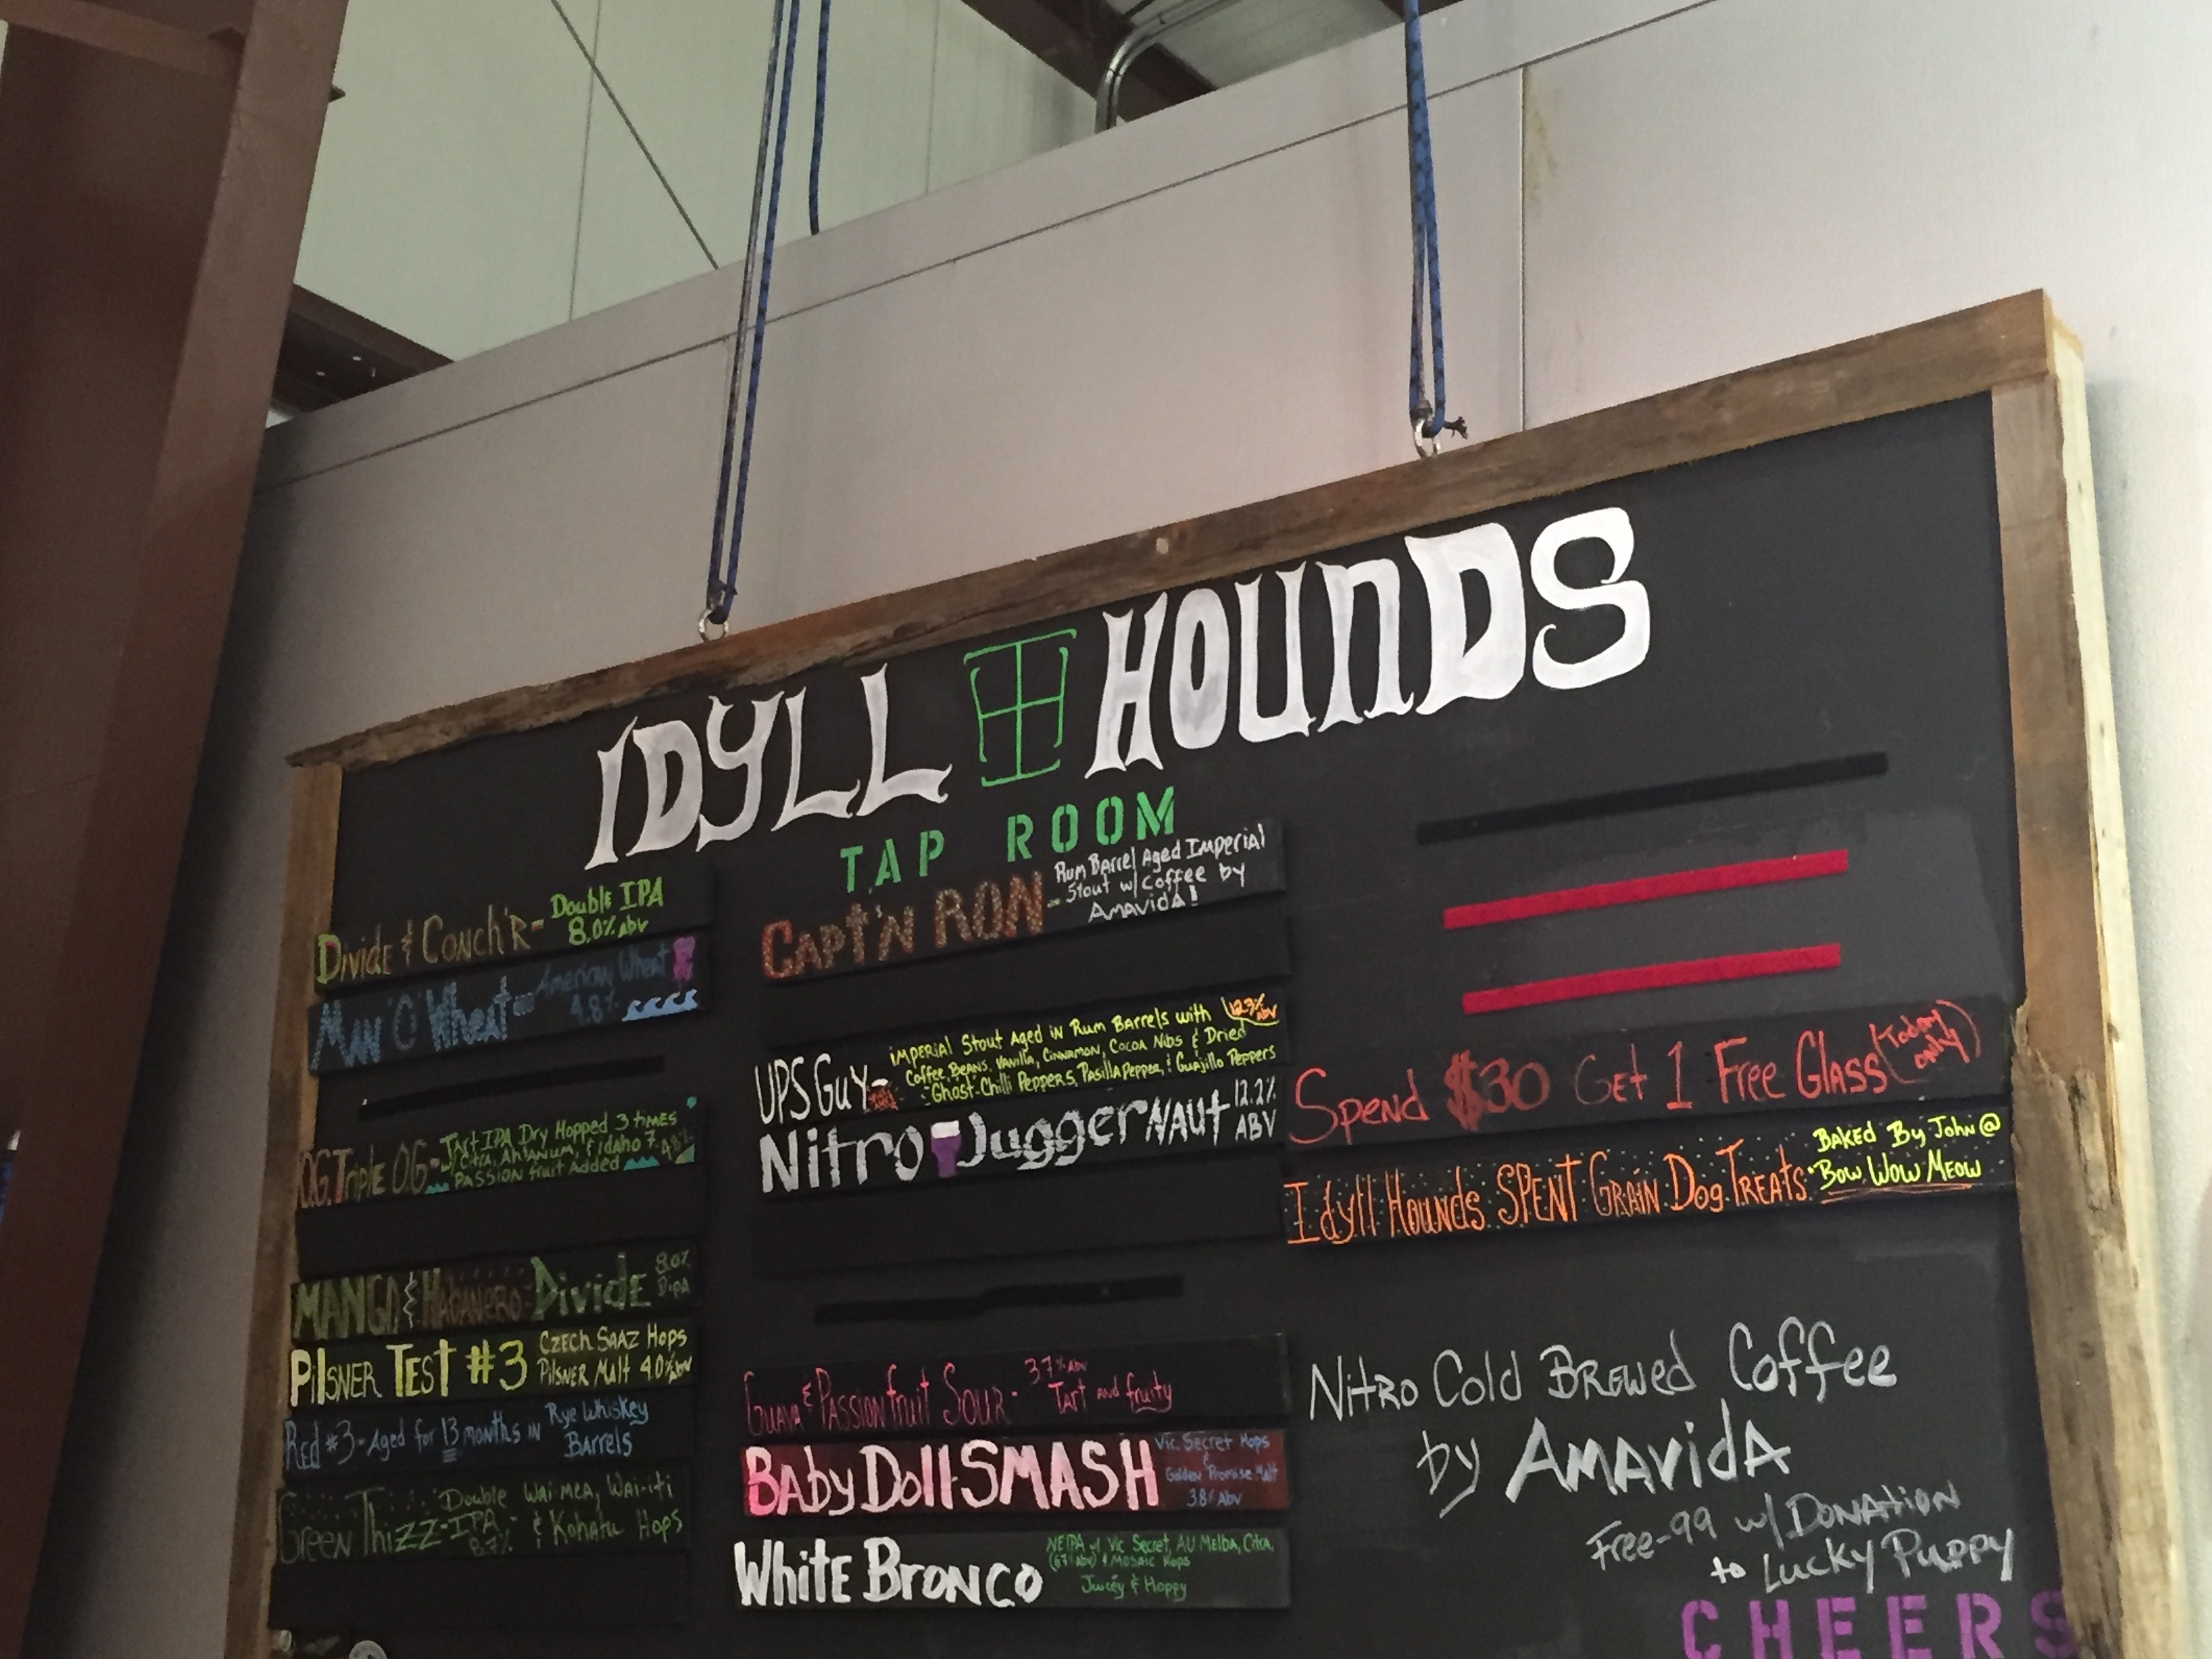 IDYLL HOUNDS
TAP ROOM
Divide & Conch'R - Double IPA
8.0% ABV
Man 'O' Wheat - American Wheat
4.8%
O.G. Triple OG - Tart IPA Dry Hopped 3 times
w/ Citra, Ahtanum, & Idaho 7
Passion fruit Added
4.8%
MANGO & HABANERO Divide 8.0%
DIPA
PilSNER TEST #3 CZECH SAAZ Hops
PilSNER Malt 4.0% ABV
Red #3 - Aged for 13 months in Rye Whiskey
Barrels
Green Thizz - Double
IPA
8.7%
Wai-mea, Wai-iti
& Kohatu Hops
Capt'n RON - Rum Barrel Aged Imperial
Stout w/ Coffee by
AMAVIDA!
UPS Guy - iMPERIAL Stout Aged in Rum Barrels with
Coffee Beans, Vanilla, Cinnamon, Cocoa Nibs & Dried
Ghost-Chilli Peppers, Pasilla Pepper, & Guajillo Peppers
12.3%
ABV
Nitro JuggerNAUt 12.2%
ABV
Guava & Passionfruit Sour - 3.7% ABV
Tart and fruity
Baby Doll SMASH Vic. Secret Hops
&
Golden Promise Malt
3.8% ABV
White Bronco NEIPA w/ Vic Secret, AU Melba, Citra,
(6.7% ABV) & Mosaic Hops
Juicey & Hoppy
Spend $30 Get 1 Free Glass (Today
only)
Idyll Hounds SPENT Grain Dog Treats Baked By John @
Bow Wow Meow
Nitro Cold Brewed Coffee
by AMAVIDA
Free-99 w/ Donation
to Lucky Puppy
CHEERS